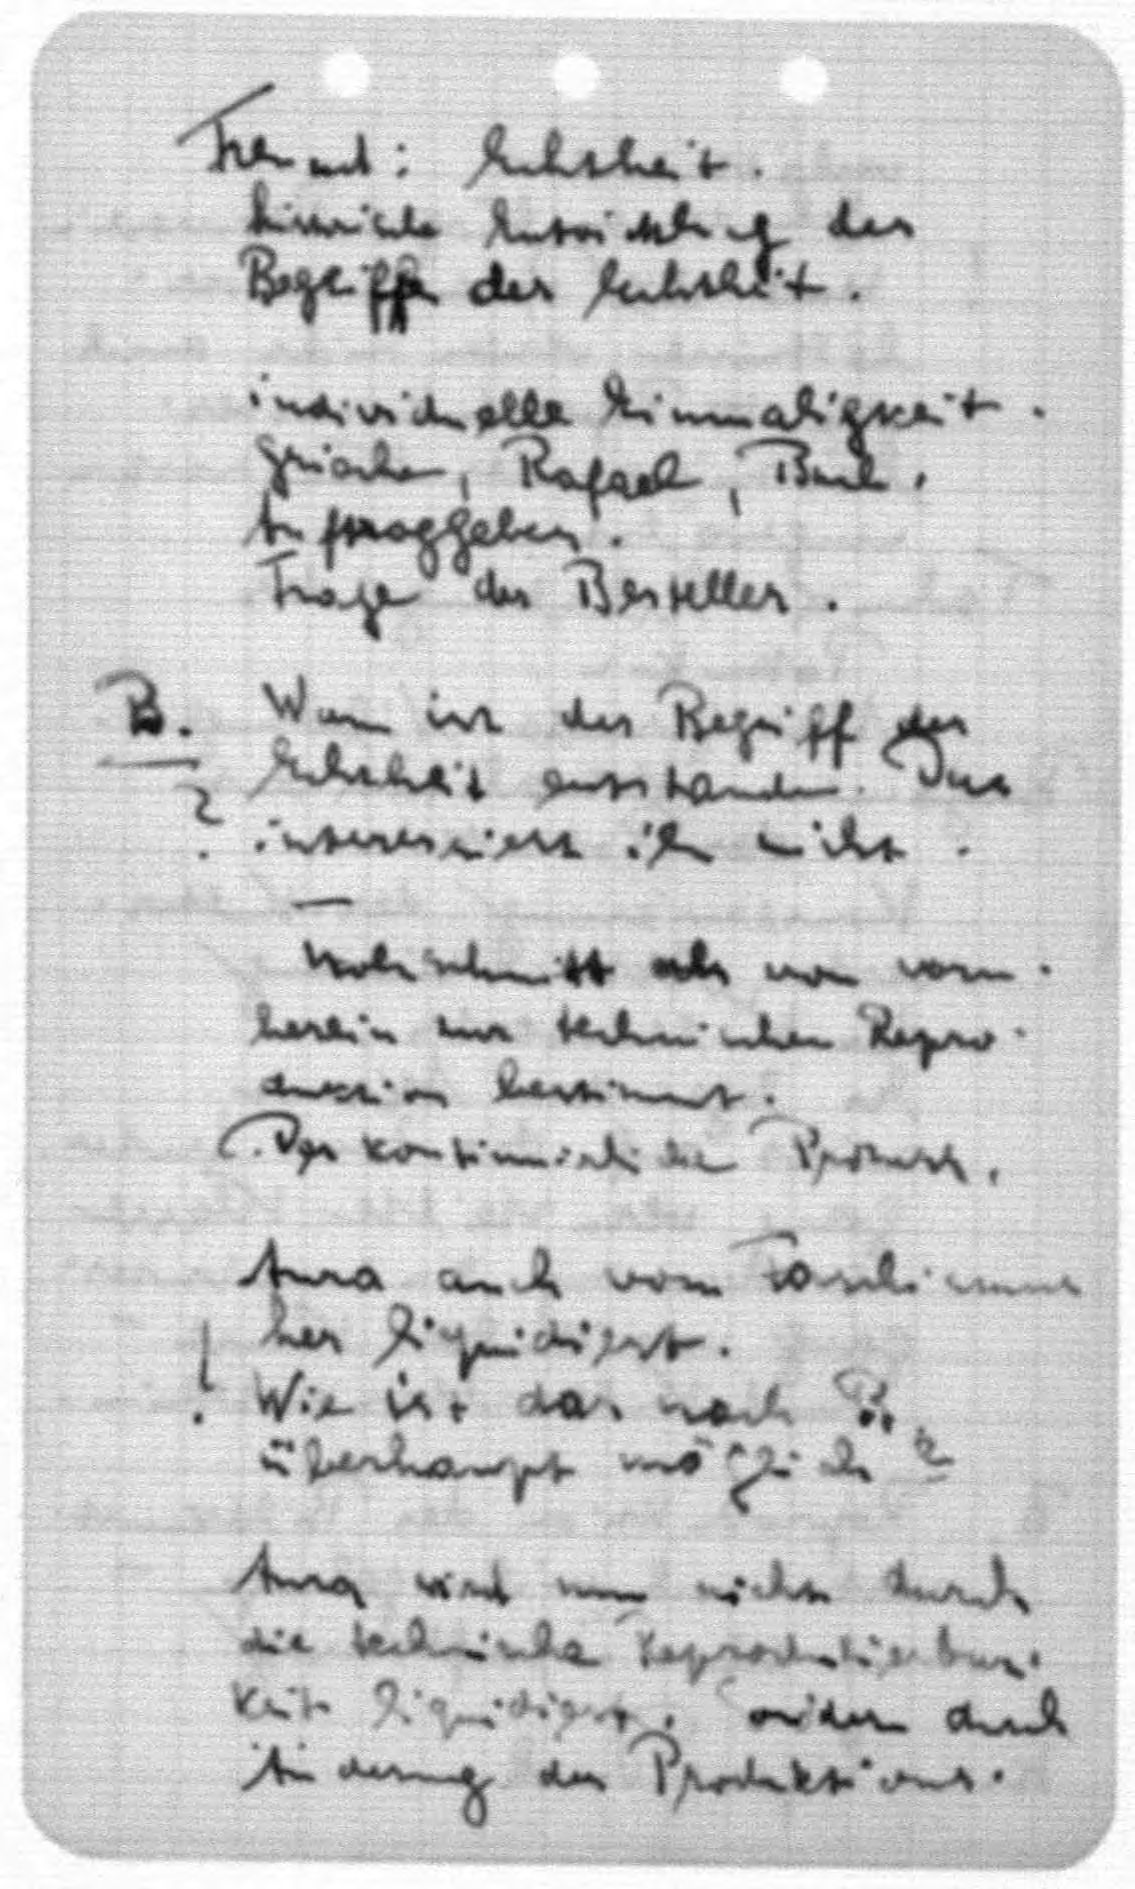 Einwand: Echtheit.
historische Entwicklung des
Begriffs der Echtheit.
individuelle Einmaligkeit.
Griechen, Rafael, Bach.
Auftraggeber.
Frage der Besteller.
B. Wann ist der Begriff der
Echtheit entstanden. Das
? interessiert ihn nicht.
—
Holzschnitt als von vorn-
herein zur technischen Repro-
duktion bestimmt.
Der kontinuierliche Prozess.
Aura auch vom Faschismus
her liquidiert.
! Wie ist das nach B.
überhaupt möglich?
Aura wird nun nicht durch
die technische Reproduzierbar-
keit liquidiert, sondern durch
Änderung der Produktions-